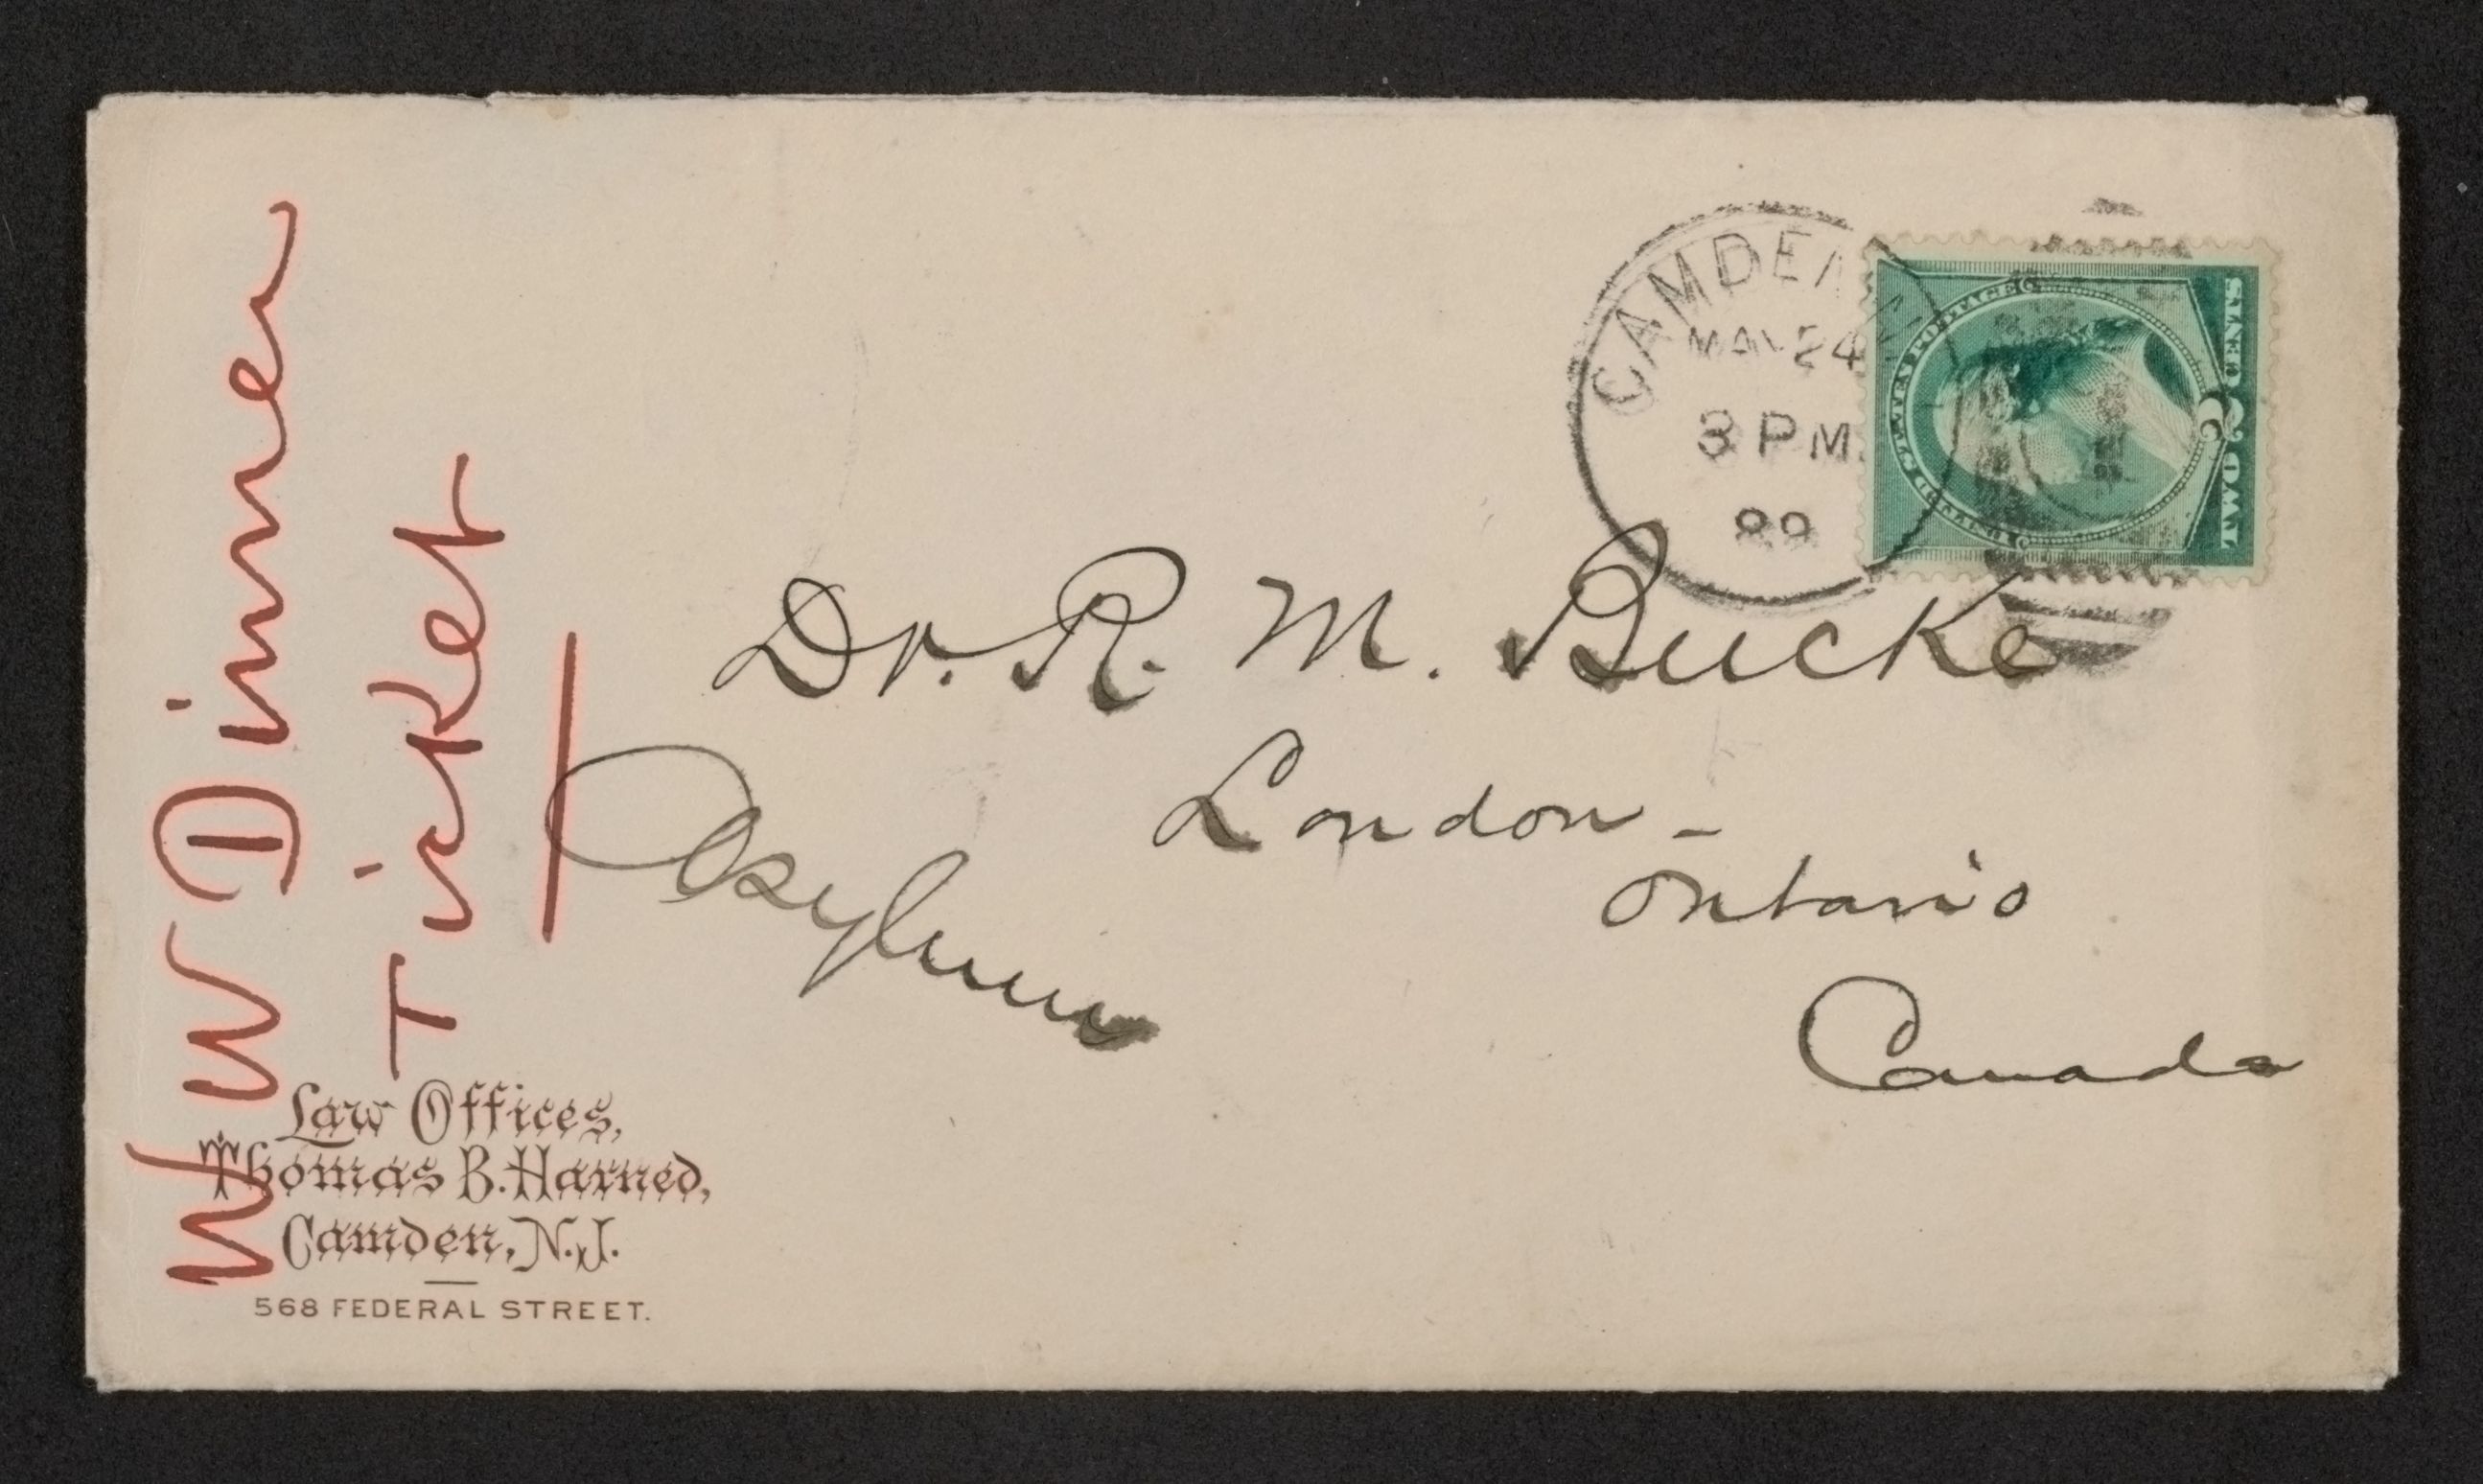 W W Dinner
Ticket
CAMDEN
MAY 24
3 PM
89
UNITED STATES POSTAGE
TWO 2 CENTS
Dr. R. M. Bucke
Asylum
London -
Ontario
Canada
Law Offices,
Thomas B. Harned,
Camden, N.J.
568 FEDERAL STREET.